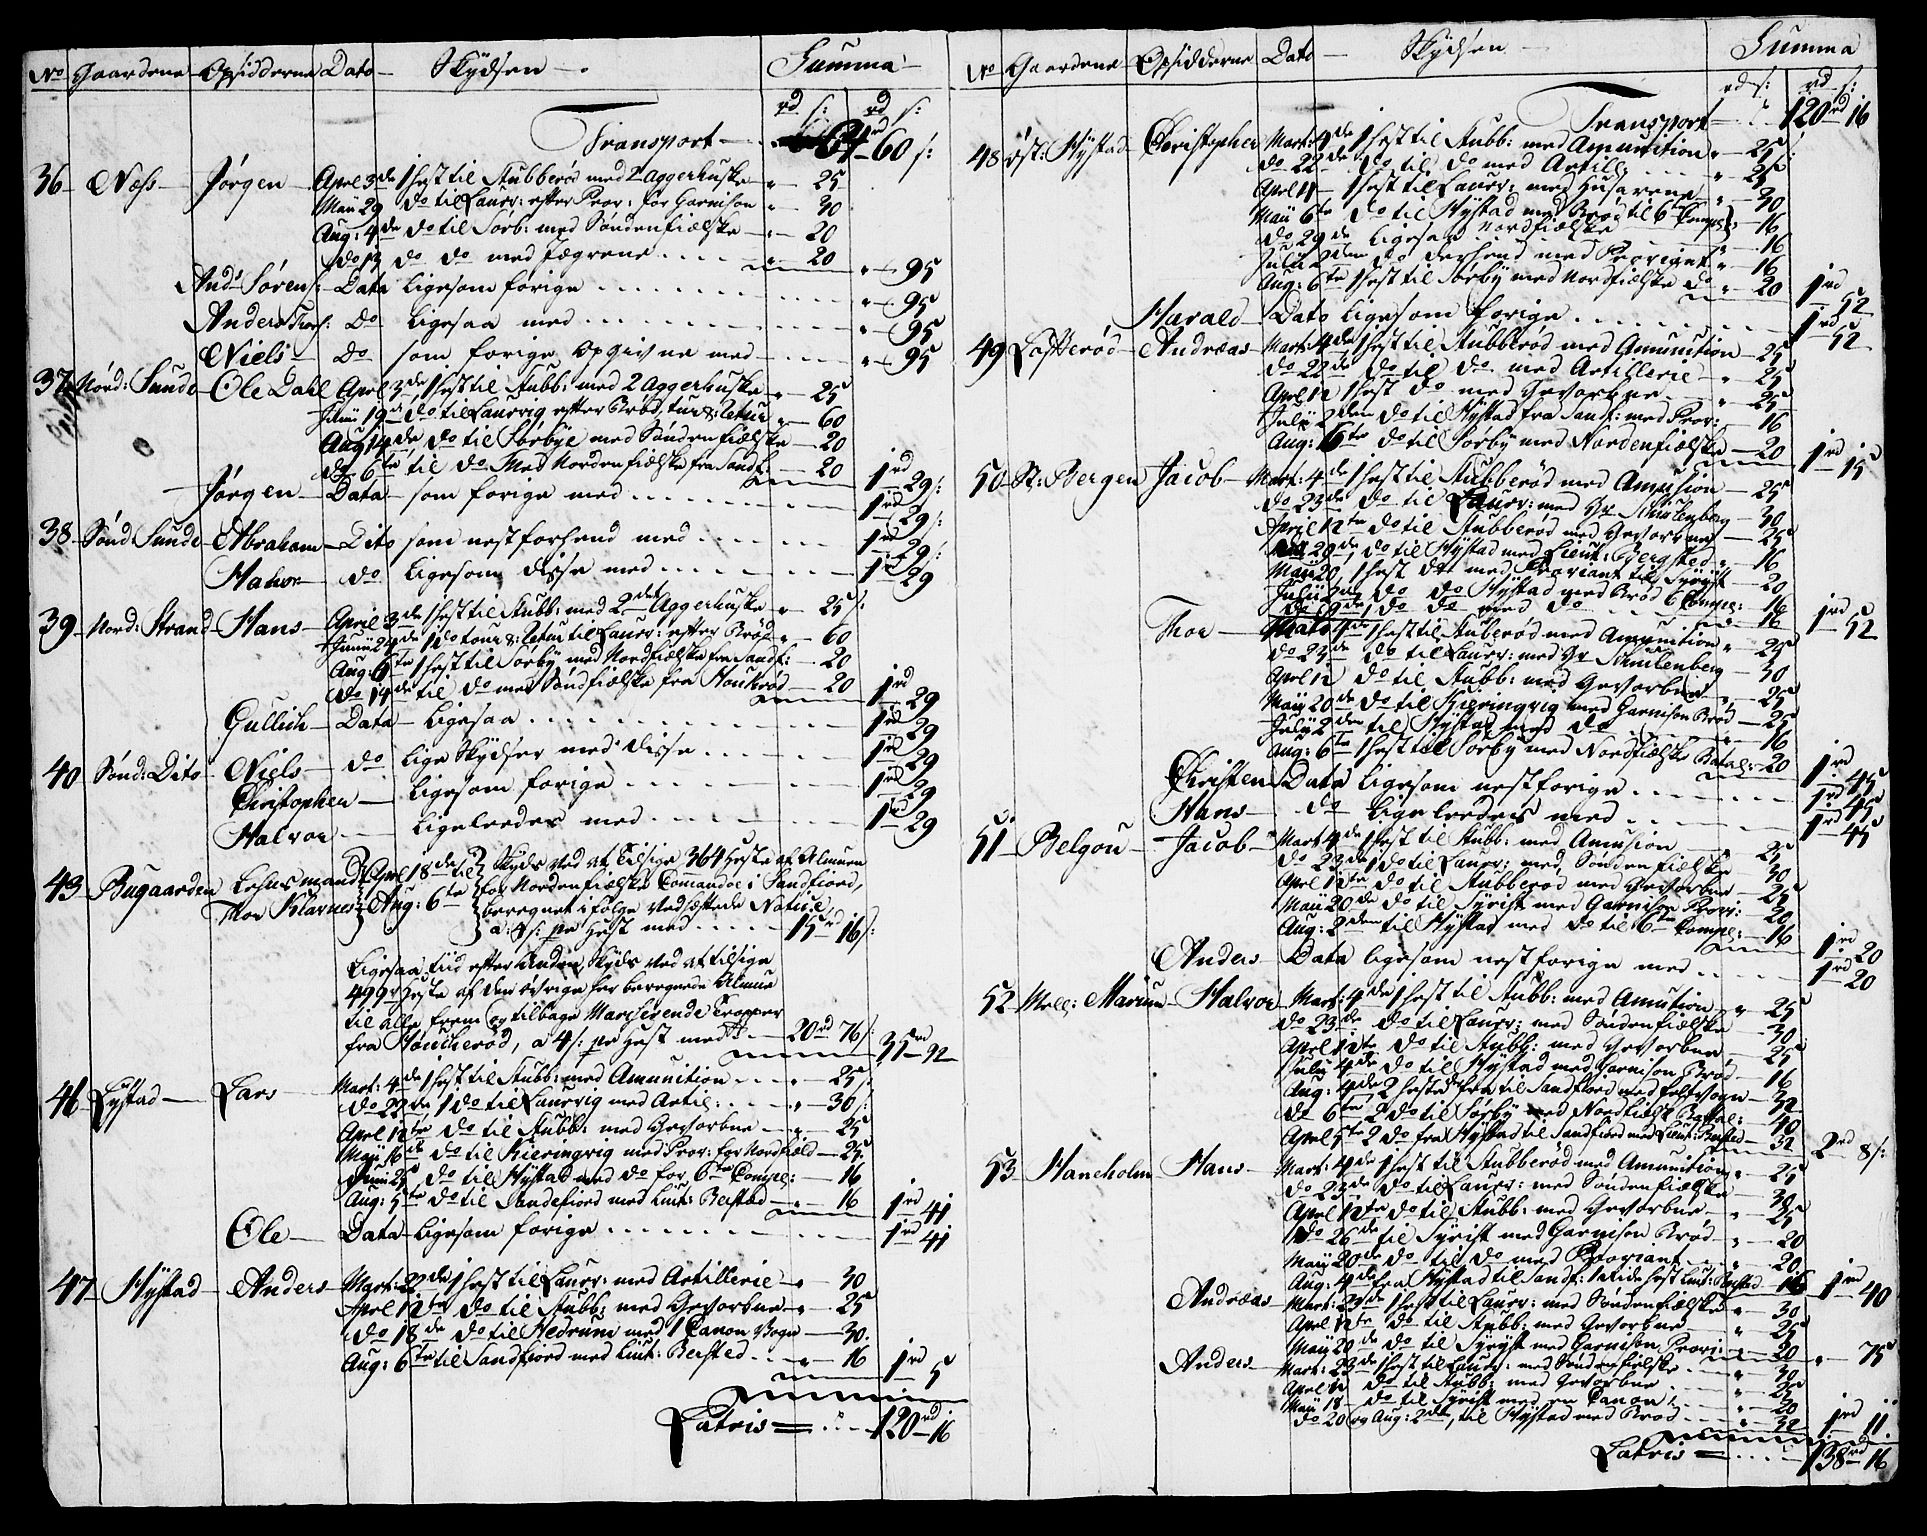 No Gaardene Opsidderne Dato Skydsen Summa
rd s: rd s:
Transport 64rd 60 s:
36 Næss Jørgen Apr 3de 1 hest til Stubberød med 2 Aggerhuske " 25
Maii 29 do til Laurv: efter Prov: for Garnison " 30
Aug: 4de do til Sørb: med Søndenfielske " 20
do 13 do do med Jægerne " 20 " 95
And: Sørens: Data Ligesom forige " 95
Anders Thors: Do Ligesaa med " 95
Niels Do som forige Opgivne med " 95
37 Nord: Sunde Ole Dahl Aprl 3de 1 hest til Stubb: med 2 Aggerhuske " 25
Junii 19 do til Laurvig efter Brød, tur & retur " 60
Aug 14de do til Sørbye med Søndenfielske 20
do 6te til do med Nordenfielske fra Sandf: 20 1rd 29 s:
Jørgen Data som forige med 1rd 29 s:
38 Sønd Sunde Abraham Dito som nestforhend med 1rd 29 s:
Halvor do ligesom disse med 1rd 29
39 Nord: Strand Hans April 3de 1 hest til Stubb: med 2det Aggerhuske " 25 s:
Junii 24de 1 do tour & retur til Laurv: efter Brød " 60
Aug: 6te 1 hest til Sørby med Nordfielske fra Sandf: 20
do 14de til do med Søndfielske fra Houkrød 20 1rd 29
Gullich Data Ligesaa 1rd 29
40 Sønd: Dito Niels do lige Skydser med disse 1rd 29
Christopher ligesom forige 1rd 29
Halvor ligeledes med 1rd 29
43 Bugaarden Lehnsmand Aprl 18de til Skyds ved at tilsige 364 heste af Almuen
Thor Klavnes Aug: 6te for Nordenfielske Commandoe i Sandfiord,
beregnet i følge vedheftede Notice
a: 4 s: pr hest med 15rd 16 s:
Ligesaa tiid efter anden, Skyds ved at tilsige
499 heste af den øvrige her beregnede Almue
til alle frem og tilbage Marcherende Tropper
fra Houcherød, a 4 s: pr hest med 20rd 76 s: 35rd 92
46 Lystad Lars Mart: 4de 1 hest til Stubb: med Amunition " 25 s:
do 22de 1 do til Laurvig med Artil: " 30 s:
Aprl 12te do til Stubb: med Gevorbne " 25
Maii 16de do til Kieringvig med Prov: for Nordfield 25
Junii 25 do til Hystad med do for 6te Compe: 16
Aug: 5te do til Sandefiord med Lieut: Bersted 16 1rd 41
Ole Data ligesom forige 1rd 41
47 Hystad Anders Mart: 22de 1 hest til Laurv: med Artillerie " 30
Aprl 12te do til Stubb: med Gevorbne " 25
do 18de do til Hedrum med 1 Canon Vogn 30.
Aug: 6te til Sandfiord med Lieut: Bersted " 16 1rd 5
Latris = 120rd 16
No Gaardene Opsidderne Dato Skydsen Summa
rd s: rd s:
Transport 120rd 16
48 Øst: Hystad Christopher Mart: 4de 1 hest til Stubb: med Amunition " 25 s:
do 22de do til do med Artill: " 25
Aprl 11 1 hest til Laurv: med Husarene " 30
Maii 6te do til Hystad med Brød til 6te Compe: 16
do 29de ligesaa Nordfielske " 16
Julii 2den do derhend med Proviant " 16
Aug: 6te 1 hest til Sørby med Nordfielske do " 20 1rd 52
Harald Dato ligesom forige 1rd 52
49 Lofterød Andreas Mart: 4de 1 hest til Stubberød med Amunition 25
do 22de do til do med Artillerie " 25
Aprl 12 1 hest do med Gevorbne " 25
Julii 2den do til Hystad fra Sandf: med Prov: 16
Aug: 6te do til Sørby med Nordenfielske 20 1rd 15
50 St: Bergen Jacob Mart: 4de 1 hest til Stubberød med Amunision 25
do 23de do til Laurv: med Hr Schulenberg 30
Apri 12te do til Stubberød med Gevorbne 25
Maii 20de do til Hystad med Lieut: Bergsted " 16
Maii 20 1 hest do med Proviant til Syrist 20
Julii 2den do do Hystad med Brød 6 Compe: 16
do 19de 1 do do med do 16 1rd 52
Thor Mart: 4de 1 hest til Stuberød med Amunition " 25
do 23de do til Laurv: med Hr Schulenberg 30
Aprl 12 do til Stubb: med Gevorbne 25
Maii 20de do til Kieringvig med Garnison Brød 25
July 2den til Hystad med do 16
Aug: 6te 1 hest til Sørby med Nordfielske Batal: 20 1rd 45
Christen Data ligesom nestforige 1rd 45
Hans do Ligeledes med 1rd 45
51 Belgou Jacob Mart 4de 1 hest til Stubb: med Amunision 25
do 23de 1 do til Laurv: med Søndenfielske 30
Aprl 12te do til Stubberød med Gevorbne 25
Maii 20de do til Syrist med Garnison Provi: 20
Aug: 2den til Hystad med do til 6te Compe: 16 1rd 20
Anders Data ligesom nestforige med 1rd 20
52 Mell: Marium Halvor Mart: 4de 1 hest til Stubb: med Amution " 25
do 23de do til Laurv: med Søndenfielske 30
Aprl 12te do til Stubb: med Gevorbne " 25
Julii 4de do til Hystad med Garnison Brød 16
Aug: 4de 2 heste fra til Sandfiord med feldvogn 32
do 6te 2 do til Sørby med Nordfielske Battal: 40
Aprl 5te 2 do fra Hystad til Sandfiord med Lieut: Bersted 32 2rd 8 s:
53 Haneholm Hans Mart: 4de 1 hest til Stubberød med Amunition " 25
do 23de do til Laurv: med Søndenfielske 30
Aprl 12te do til Stubb: med Gevorbne " 25
do 26de til Syrist med Garnison Brød " 20
Maii 20de do til do med Proviant " 20
Aug: 4de fra Hystad til Sandf: 1 Ride hest Lieut: Bersted 16 1rd 40
Andreas Mart: 23de 1 hest til Laurv: med Søndenfielske " 30
Aprl 12te do til Stubb: med Gevorbne " 25
Maii 20de do til Syrist med Garnison Provi: " 20 " 75
Anders Mart: 23de 1 hest til Laurv: med Søndenfielske " 30
Aprl 12 do til Stubb: med Gevorbne " 25
Maii 18 do til Syrist med en Canon " 20
do 20 og Aug: 2den til Hystad med Brød " 32 1rd 11.
Latris = 138rd 16